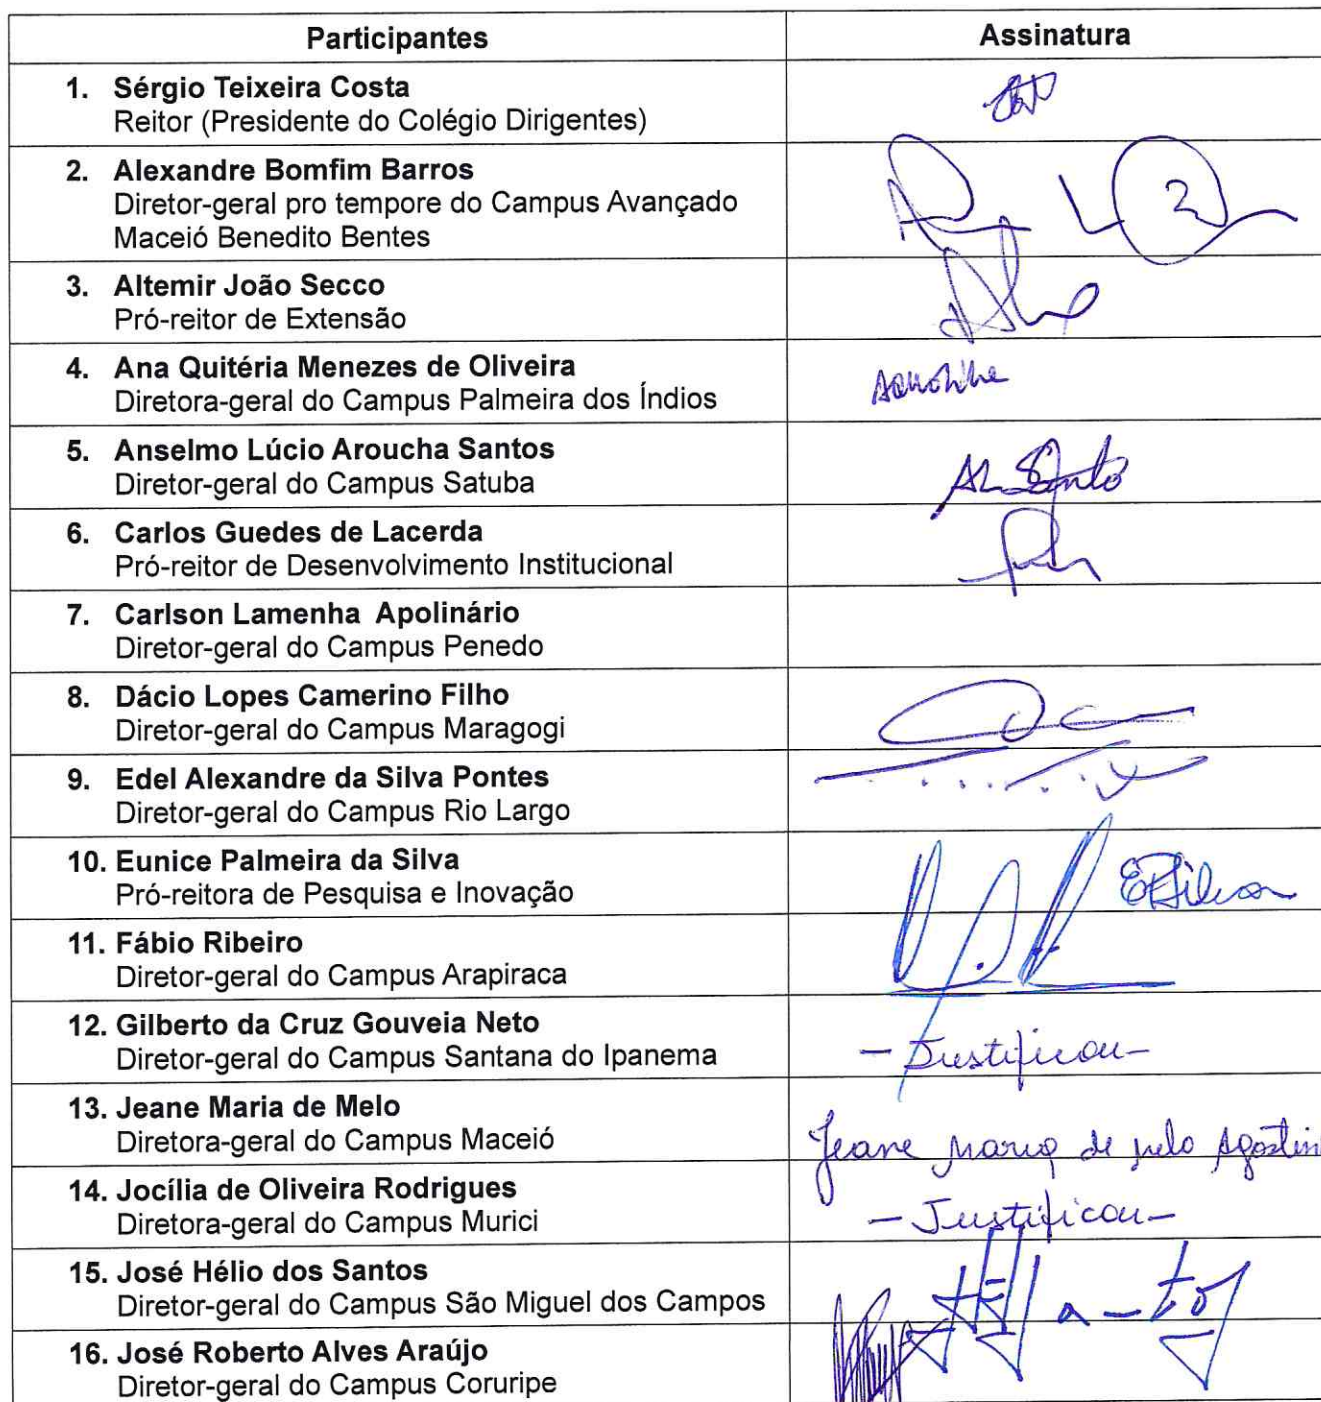 Participantes Assinatura
1. Sérgio Teixeira Costa
Reitor (Presidente do Colégio Dirigentes)
2. Alexandre Bomfim Barros
Diretor-geral pro tempore do Campus Avançado
Maceió Benedito Bentes
3. Altemir João Secco
Pró-reitor de Extensão
4. Ana Quitéria Menezes de Oliveira
Diretora-geral do Campus Palmeira dos Índios
5. Anselmo Lúcio Aroucha Santos
Diretor-geral do Campus Satuba
6. Carlos Guedes de Lacerda
Pró-reitor de Desenvolvimento Institucional
7. Carlson Lamenha Apolinário
Diretor-geral do Campus Penedo
8. Dácio Lopes Camerino Filho
Diretor-geral do Campus Maragogi
9. Edel Alexandre da Silva Pontes
Diretor-geral do Campus Rio Largo
10. Eunice Palmeira da Silva
Pró-reitora de Pesquisa e Inovação
EPSilva
11. Fábio Ribeiro
Diretor-geral do Campus Arapiraca
12. Gilberto da Cruz Gouveia Neto
Diretor-geral do Campus Santana do Ipanema
- Justificou -
13. Jeane Maria de Melo
Diretora-geral do Campus Maceió
Jeane Maria de Melo
14. Jocília de Oliveira Rodrigues
Diretora-geral do Campus Murici
- Justificou -
15. José Hélio dos Santos
Diretor-geral do Campus São Miguel dos Campos
16. José Roberto Alves Araújo
Diretor-geral do Campus Coruripe